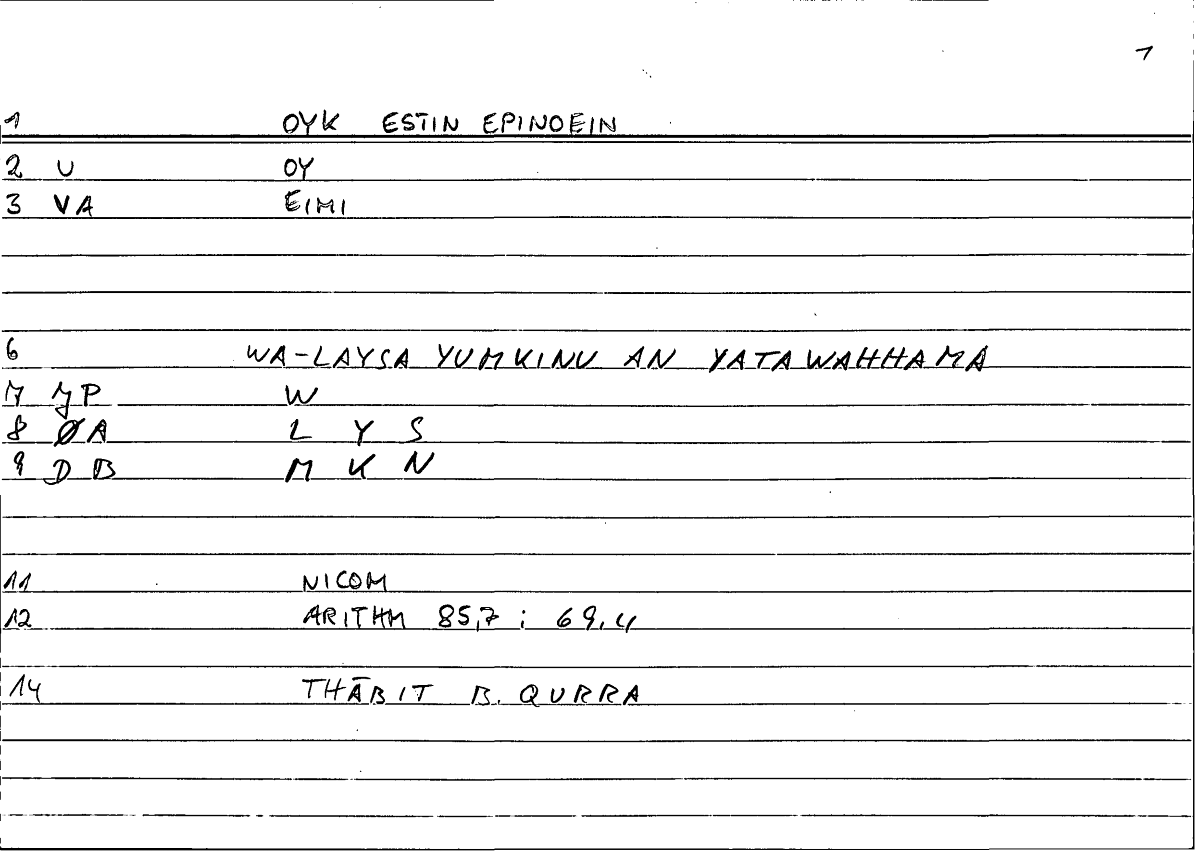 1
1 OYK ESTIN EPINOEIN
2 U OY
3 VA EIMI
6 WA-LAYSA YUMKINU AN YATAWAHHAMA
7 JP W
8 ØA L Y S
9 DB M K N
11 NICOM
12 ARITHM 85,7 ; 69,4
14 THĀBIT B. QURRA